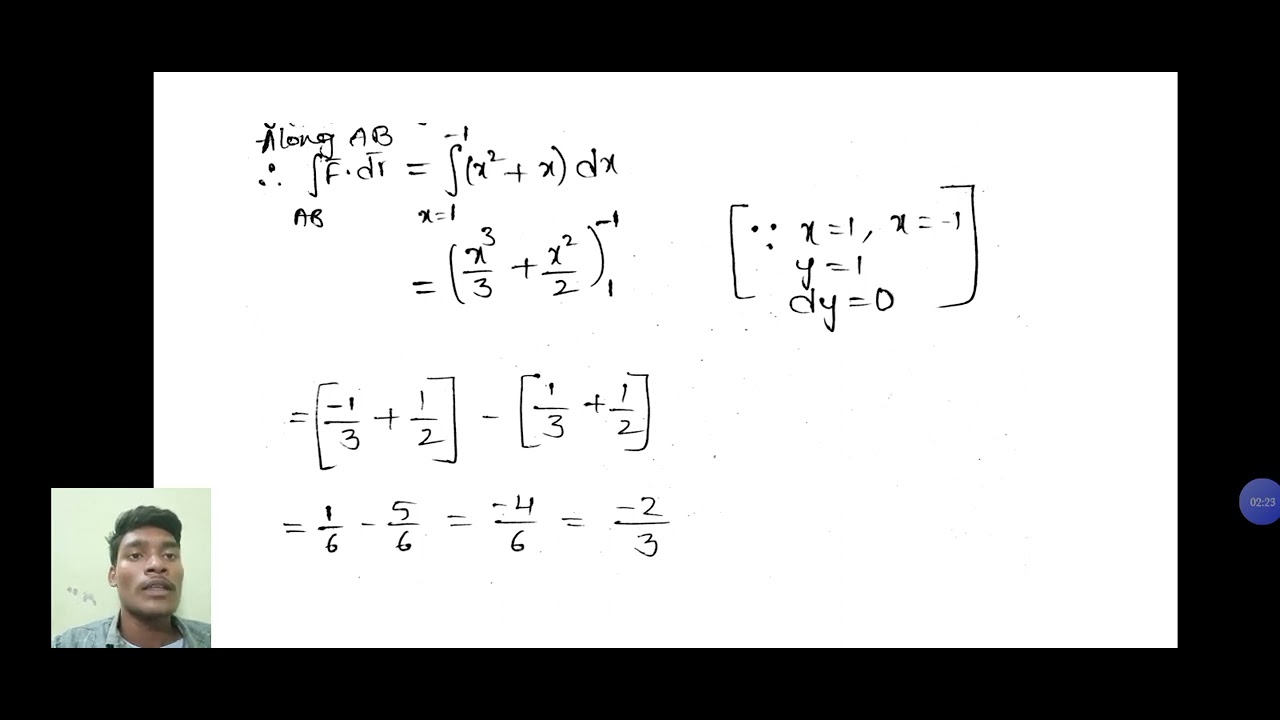 Along AB
∴ ∫F̄·dr̄ = ∫(x² + x) dx
AB x=1 -1
= (x³/3 + x²/2)₁⁻¹
[∵ x=1, x=-1
y=1
dy=0]
= [-1/3 + 1/2] - [1/3 + 1/2]
= 1/6 - 5/6 = -4/6 = -2/3
02:23